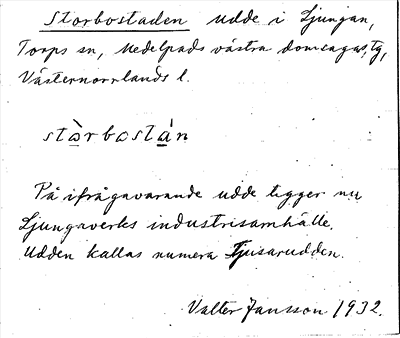 Storbostaden udde i Ljungan,
Torps sn, Medelpads västra domsagas tg,
Västernorrlands l.
stòrbostán
På ifrågavarande udde ligger nu
Ljungaverks industrisamhälle.
Udden kallas numera Tjusarudden.
Valter Jansson 1932.